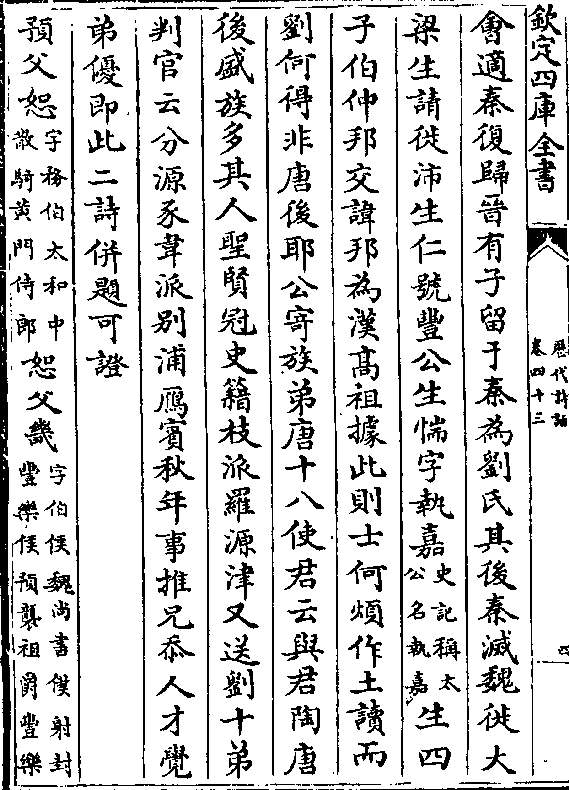 欽定四庫全書
歷代詩話
卷四十三
四
會適秦復歸晉有子留于秦為劉氏其後秦滅魏徙大
梁生請徙沛生仁號豐公生惴字執嘉史記稱太公名執嘉生四
子伯仲邦交諱邦為漢髙祖據此則士何煩作土讀而
劉何得非唐後耶公寄族弟唐十八使君云與君陶唐
後盛族多其人聖賢冠史籍枝派羅源津又送劉十弟
判官云分源豕韋派别浦鴈賓秋年事推兄忝人才覺
弟優即此二詩併題可證
預父恕字務伯太和中散騎黄門侍郎恕父畿字伯侯魏尚書僕射封豐樂侯預襲祖爵豐樂